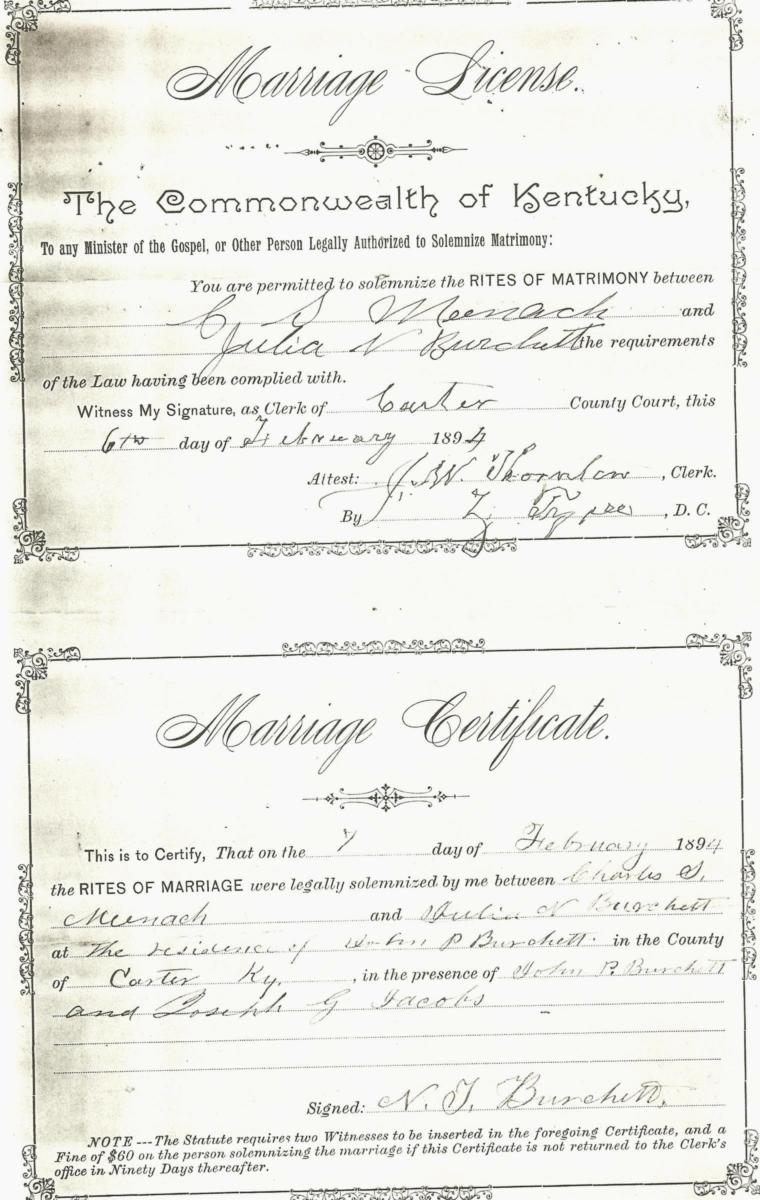 Marriage License.
The Commonwealth of Kentucky,
To any Minister of the Gospel, or Other Person Legally Authorized to Solemnize Matrimony:
You are permitted to solemnize the RITES OF MATRIMONY between
C S Meenach and
Julia N Burchett the requirements
of the Law having been complied with.
Witness My Signature, as Clerk of Carter County Court, this
6th day of February 1894
Attest: J. W. , Clerk.
By Z. , D. C.
Marriage Certificate.
This is to Certify, That on the 7 day of February 1894
the RITES OF MARRIAGE were legally solemnized by me between Charles S.
Meenach and Julia N Burchett
at the residence of John P Burchett in the County
of Carter Ky. , in the presence of John P. Burchett
and Joseph G Jacobs
Signed: N. T. Burchett.
NOTE ---The Statute requires two Witnesses to be inserted in the foregoing Certificate, and a
Fine of $60 on the person solemnizing the marriage if this Certificate is not returned to the Clerk's
office in Ninety Days thereafter.